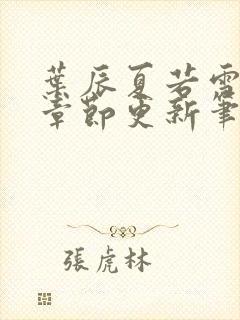 葉辰夏若雪
章節更新筆
張虎林